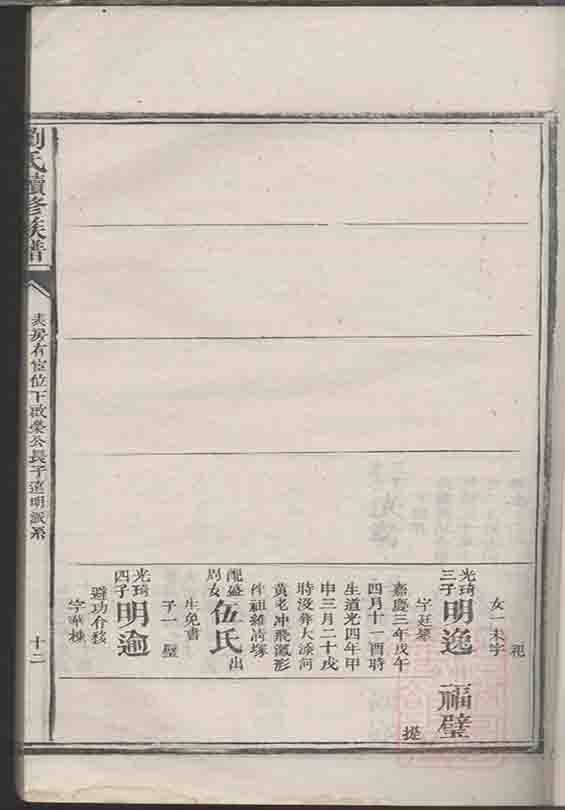 祀
女一未字
光琦三子明逸
福璧
字廷
提
嘉慶三年戊午
四月十一酉時
生道光四年甲
申三月二十戌
時沒葬大漆河
黃老冲飛鵞形
件祖雜荷塚
配盛周女伍氏出
生免書
子一 璧
光琦四子明逾
避功作移
字華棟
劉氏續修族譜
房有宦位下啟榮公長子遠明派系
十二